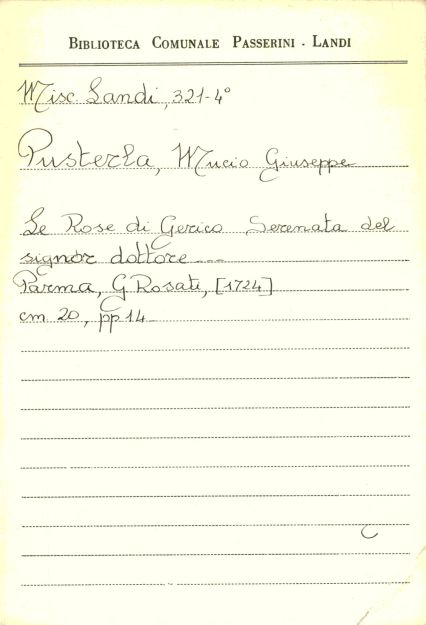 BIBLIOTECA COMUNALE PASSERINI - LANDI
Misc Landi, 321-4°
Pusterla, Mucio Giuseppe
Le Rose di Gerico Serenata del
signor dottore ---
Parma, G Rosati, [1724]
cm 20, pp 14